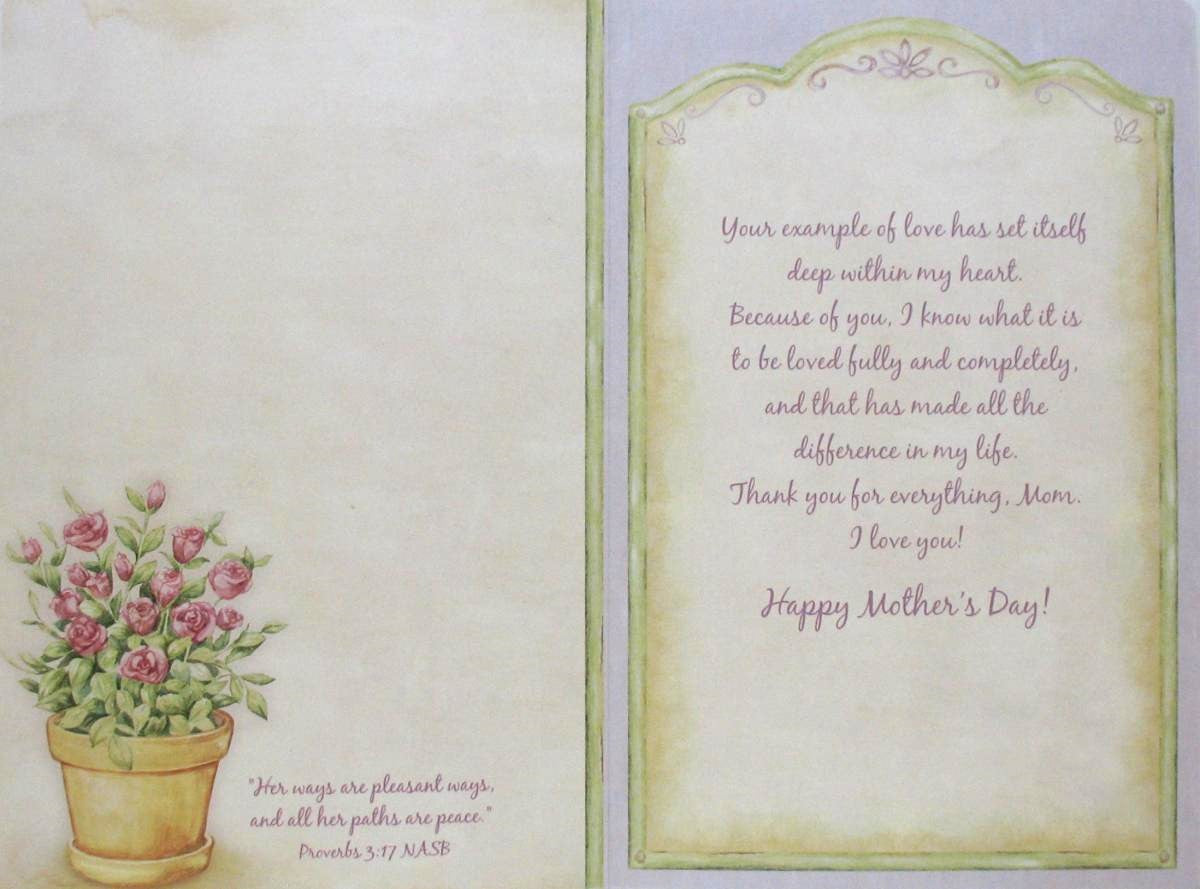 "Her ways are pleasant ways,
and all her paths are peace."
Proverbs 3:17 NASB
Your example of love has set itself
deep within my heart.
Because of you, I know what it is
to be loved fully and completely,
and that has made all the
difference in my life.
Thank you for everything, Mom.
I love you!
Happy Mother's Day!